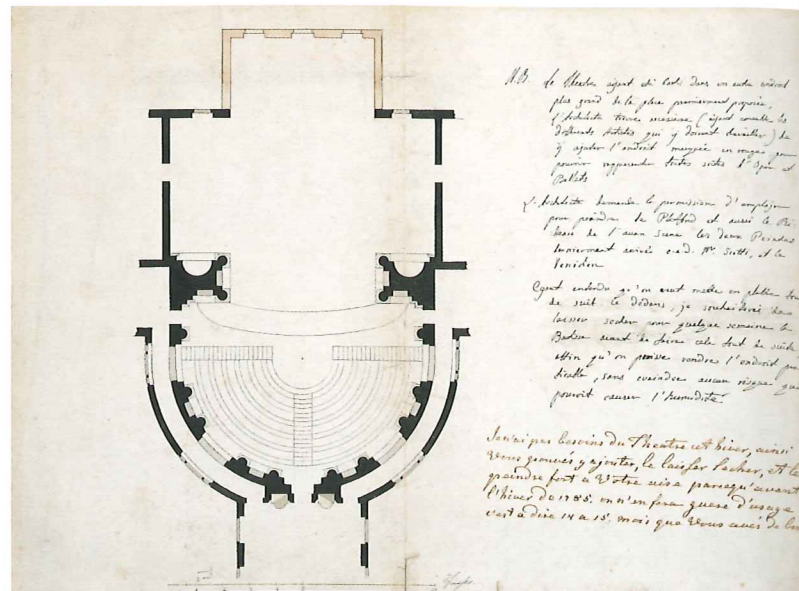 N.B. Le Theatre ayant eté basti dans un autre endroit
plus grand de la place premierement proposée,
l'Architecte trouve necessaire (ayant consulté les
differents Artistes qui y doivent travailler) de
y ajouter l'endroit marquée en rouge, pour
pouvoir rapresenter toutes sortes d'Opera et
Ballets
L'Architecte demande la permission d'employer
pour peindre le Plaffond et aussi le
de l'avan Scene les deux
dernierment arrivés c.a.d. Mr. Scotti, et le
Venitien
Ayant entendu qu'on veut mettre en platre tout
de suit le dedans, je souhaiterai de
laisser secher pour quelque semaine le
avant de faire cela tout de suite
affin qu'on puisse rendre l'endroit
, sans craindre aucun risque que
pouroit causer l'humidité
Je n'ai pas besoins du Theatre cet hiver, ainsi
vous pouvés y ajouter, le laisser secher, et le
peindre fort a Votre aise parcequ'avant
l'hiver de 1785. on n'en fera guere d'usage
c'est a dire 14 a 15. mois que vous avés de